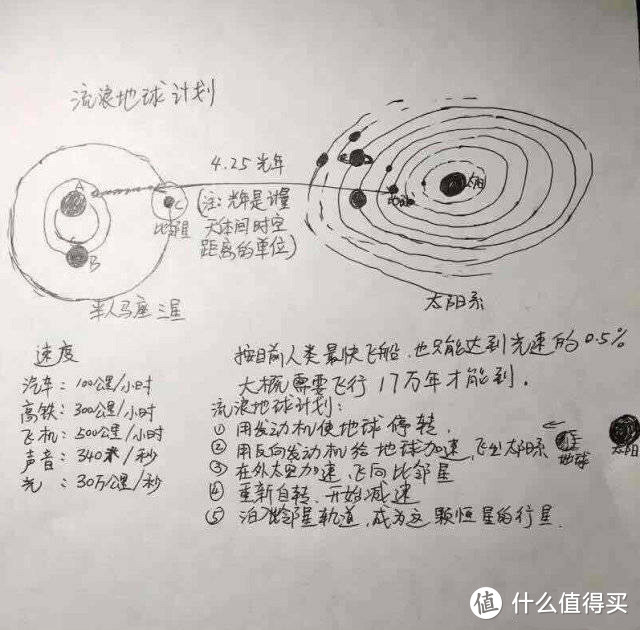 流浪地球计划
4.25光年
(注:光年是计量
天体间时空
距离的单位)
A
B
C
比邻星
半人马座三星
太阳
地球
太阳系
速度
汽车:100公里/小时
高铁:300公里/小时
飞机:500公里/小时
声音:340米/秒
光:30万公里/秒
按目前人类最快飞船,也只能达到光速的0.5%
大概需要飞行17万年才能到.
流浪地球计划:
① 用发动机使地球停转.
② 用反向发动机给地球加速,飞出太阳系
③ 在外太空加速,飞向比邻星
④ 重新自转、开始减速
⑤ 泊入比邻星轨道,成为这颗恒星的行星.
地球
太阳
值 什么值得买